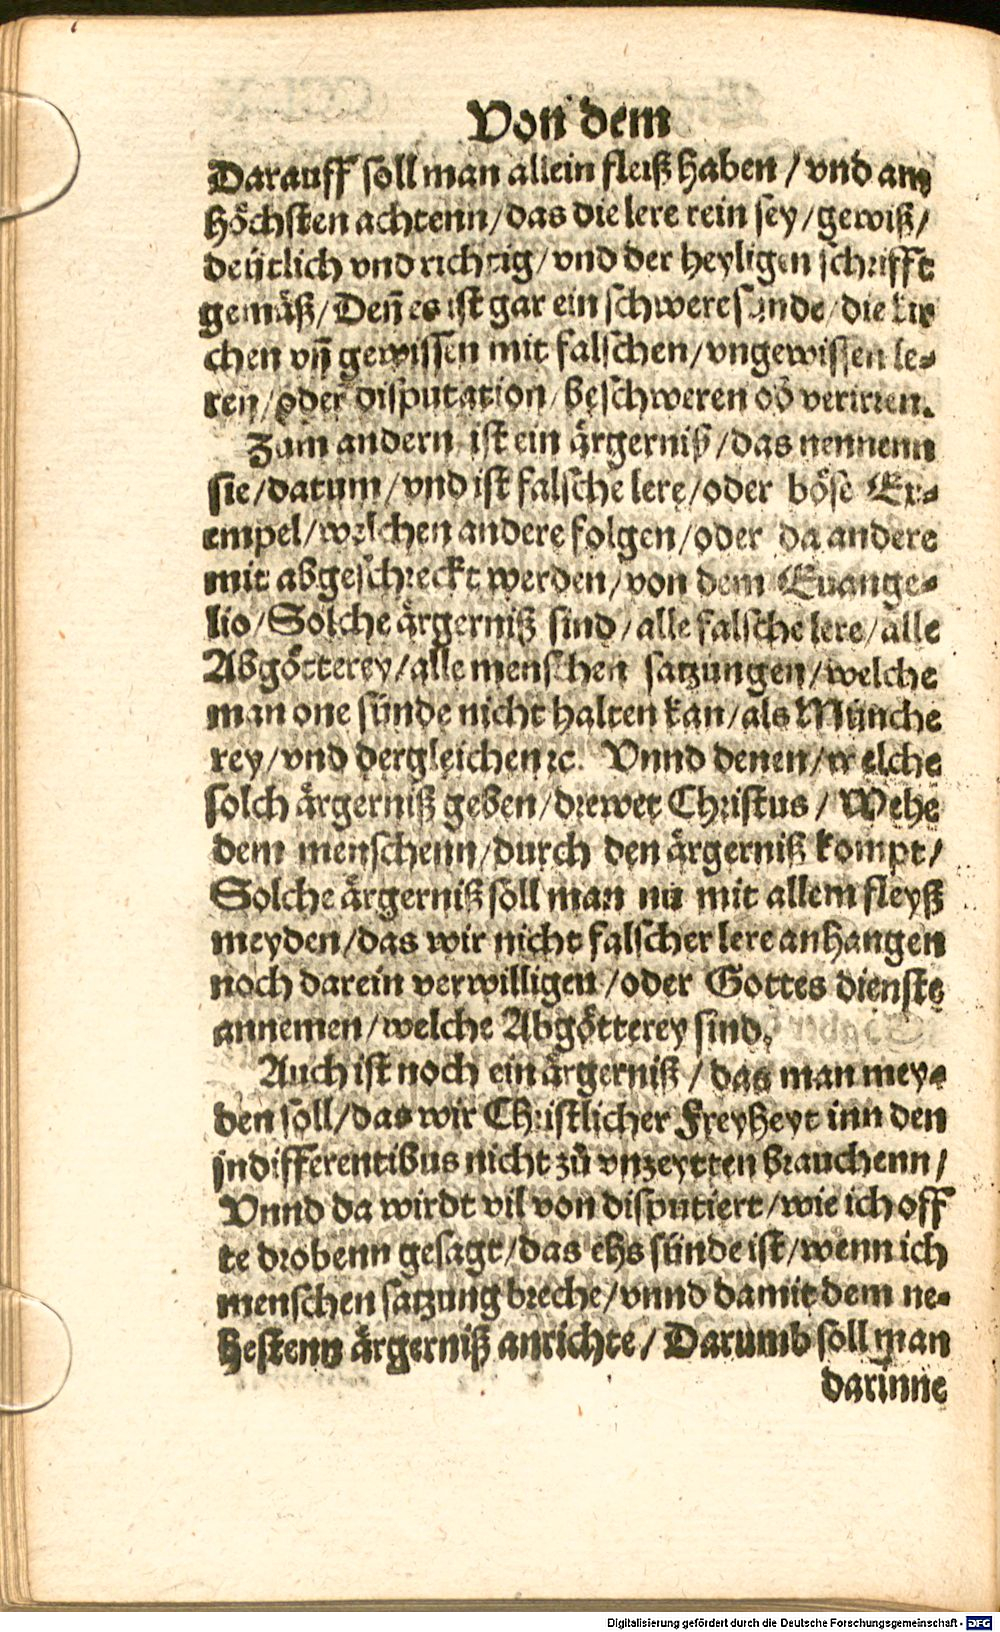 Von dem
Darauff soll man allein fleiß haben / vnd am
höchsten achtenn / das die lere rein sey / gewiß /
deütlich vnd richtig / vnd der heyligen schrifft
gemäß / Deñ es ist gar ein schwere sünde / die kir
chen vñ gewissen mit falschen / vngewissen le-
ren / oder disputation / beschweren oď verirren.
Zum andern ist ein ärgerniß / das nennenn
sie / datum / vnd ist falsche lere / oder böse Ex-
empel / welchen andere folgen / oder da andere
mit abgeschreckt werden / von dem Euange-
lio / Solche ärgerniß sind / alle falsche lere / alle
Abgötterey / alle menschen satzungen / welche
man one sünde nicht halten kan / als Münche
rey / vnd dergleichen ꝛc. Vnnd denen / welche
solch ärgerniß geben / drewet Christus / Wehe
dem menschenn / durch den ärgerniß kompt /
Solche ärgerniß soll man nu mit allem fleyß
meyden / das wir nicht falscher lere anhangen
noch darein verwilligen / oder Gottes dienste
annemen / welche Abgötterey sind.
Auch ist noch ein ärgerniß / das man mey-
den soll / das wir Christlicher Freyheyt inn den
jndifferentibus nicht zů vnzeytten brauchenn /
Vnnd da wirdt vil von disputiert / wie ich off
te drobenn gesagt / das ehs sünde ist / wenn ich
menschen satzung breche / vnnd damit dem ne-
hestenn ärgerniß anrichte / Darumb soll man
darinne
Digitalisierung gefördert durch die Deutsche Forschungsgemeinschaft - DFG